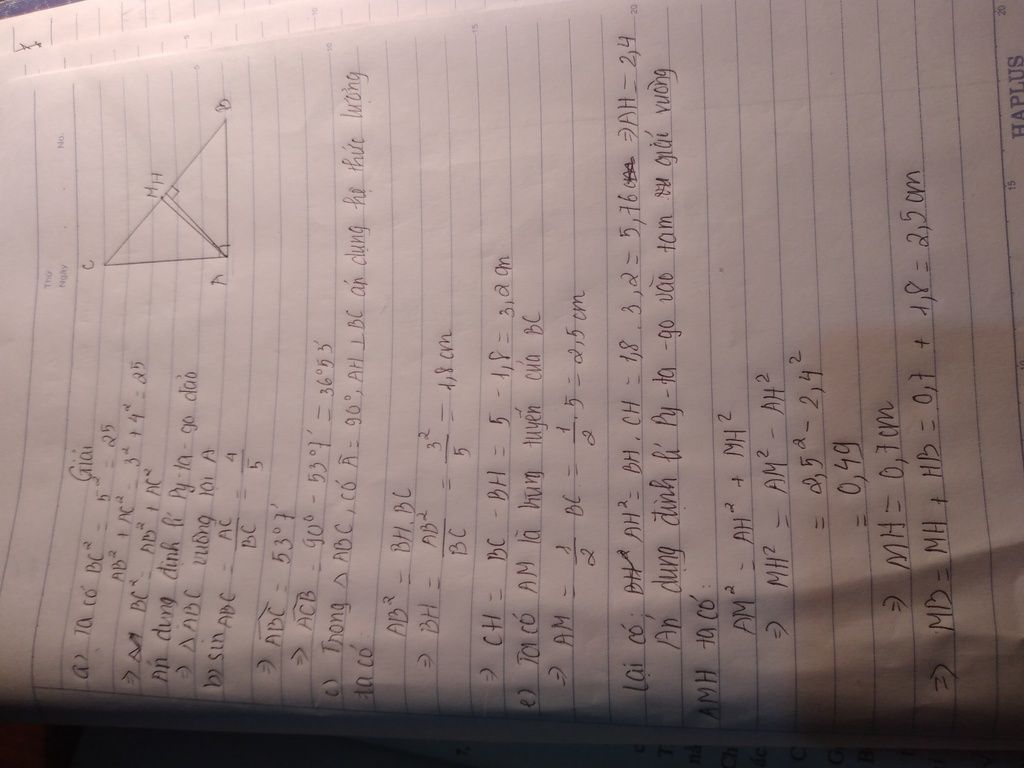 Thứ
Ngày
No.
Giải
a) Ta có BC² = 5² = 25
AB² + AC² = 3² + 4² = 25
⇒ BC² = AB² + AC²
Áp dụng định lí Py-ta-go đảo
⇒ △ABC vuông tại A
b) sin ABC = AC/BC = 4/5
⇒ ABC = 53°7'
⇒ ACB = 90° - 53°7' = 36°53'
c) Trong △ABC, có A = 90°, AH ⊥ BC áp dụng hệ thức lượng
ta có
AB² = BH.BC
⇒ BH = AB²/BC = 3²/5 = 1,8cm
⇒ CH = BC - BH = 5 - 1,8 = 3,2cm
e) Ta có AM là trung tuyến của BC
⇒ AM = 1/2 BC = 1/2 . 5 = 2,5cm
Lại có: AH² = BH.CH = 1,8 . 3,2 = 5,76 ⇒ AH = 2,4
Áp dụng định lí Py-ta-go vào tam giác vuông
AMH ta có:
AM² = AH² + MH²
⇒ MH² = AM² - AH²
= 2,5² - 2,4²
= 0,49
⇒ MH = 0,7cm
⇒ MB = MH + HB = 0,7 + 1,8 = 2,5cm
C
M,H
A
B
5
10
15
20
HAPLUS